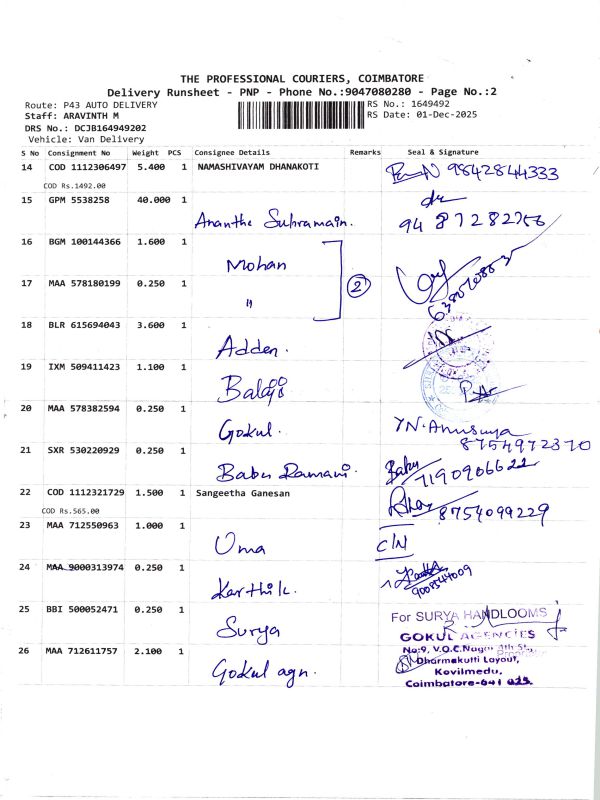 THE PROFESSIONAL COURIERS, COIMBATORE
Delivery Runsheet - PNP - Phone No.:9047080280 - Page No.:2
Route: P43 AUTO DELIVERY
RS No.: 1649492
Staff: ARAVINTH M
RS Date: 01-Dec-2025
DRS No.: DCJB164949202
Vehicle: Van Delivery
S No Consignment No Weight PCS Consignee Details Remarks Seal & Signature
14 COD 1112306497 5.400 1 NAMASHIVAYAM DHANAKOTI 9842844333
COD Rs.1492.00
15 GPM 5538258 40.000 1
Ananthe Subramain. 94 87282756
16 BGM 100144366 1.600 1
Mohan
2
17 MAA 578180199 0.250 1
"
18 BLR 615694043 3.600 1
Adden.
19 IXM 509411423 1.100 1
Balaji
20 MAA 578382594 0.250 1
Gokul. YN. Anusuya
8754972370
21 SXR 530220929 0.250 1
Babu Ramani. Babu 7190906622
22 COD 1112321729 1.500 1 Sangeetha Ganesan
COD Rs.565.00 8754099229
23 MAA 712550963 1.000 1
Uma C/N
24 MAA 9000313974 0.250 1
Karthik. 9008544009
25 BBI 500052471 0.250 1
Surya
For SURYA HANDLOOMS
Proprietor
26 MAA 712611757 2.100 1
Gokul agn.
GOKUL AGENCIES
No:9, V.O.C.Nagar 4th St.,
Dharmakutti Layout,
Kovilmedu,
Coimbatore-641 025.